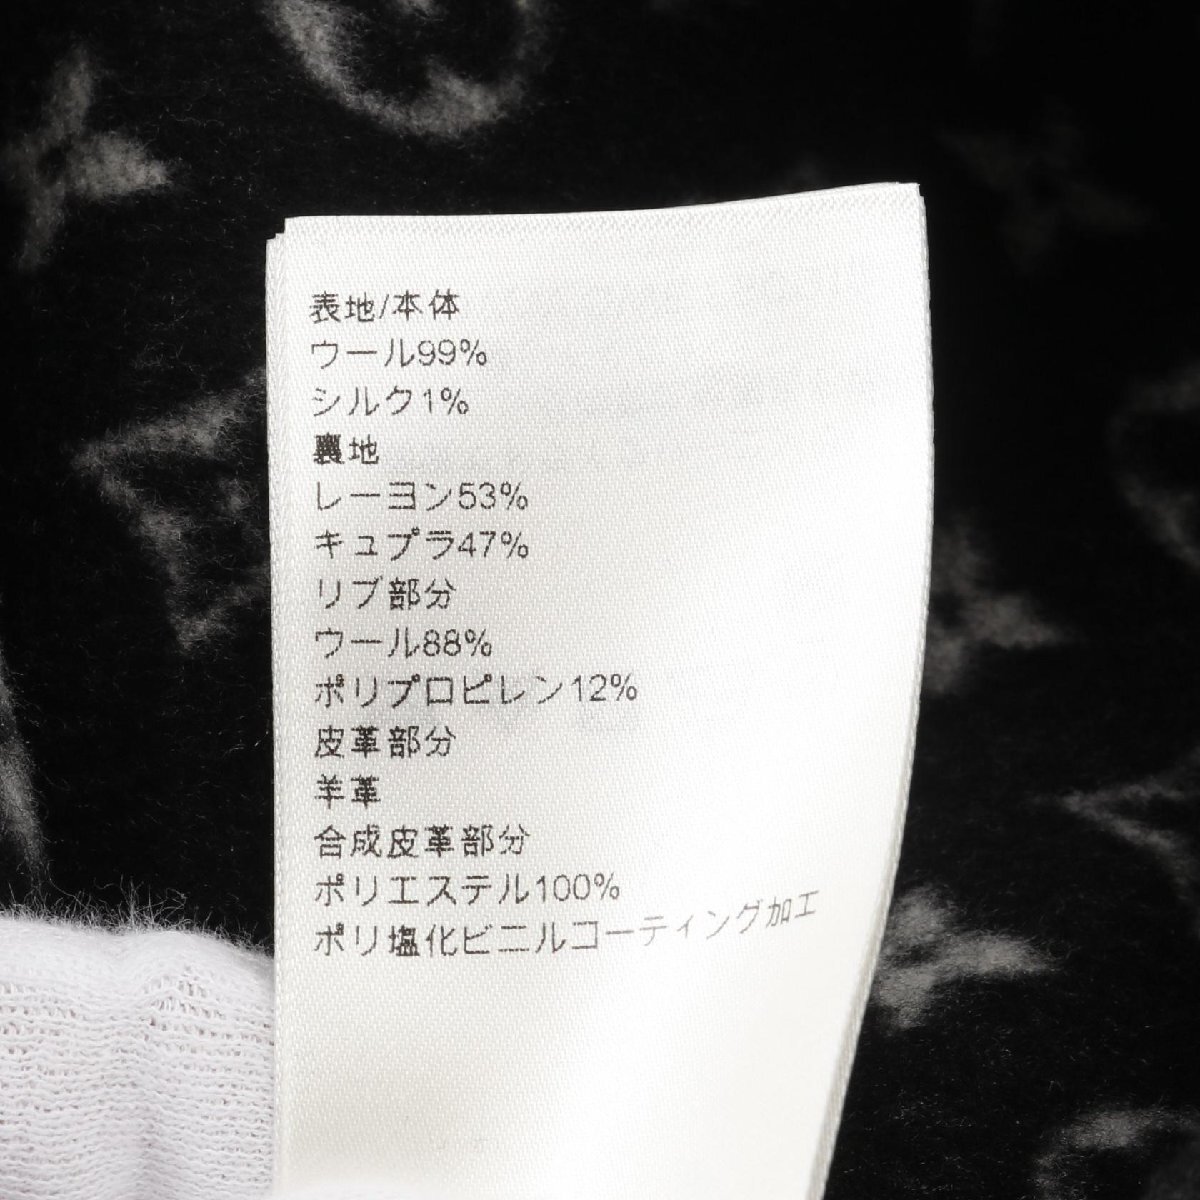 表地/本体
ウール99%
シルク1%
裏地
レーヨン53%
キュプラ47%
リブ部分
ウール88%
ポリプロピレン12%
皮革部分
羊革
合成皮革部分
ポリエステル100%
ポリ塩化ビニルコーティング加工